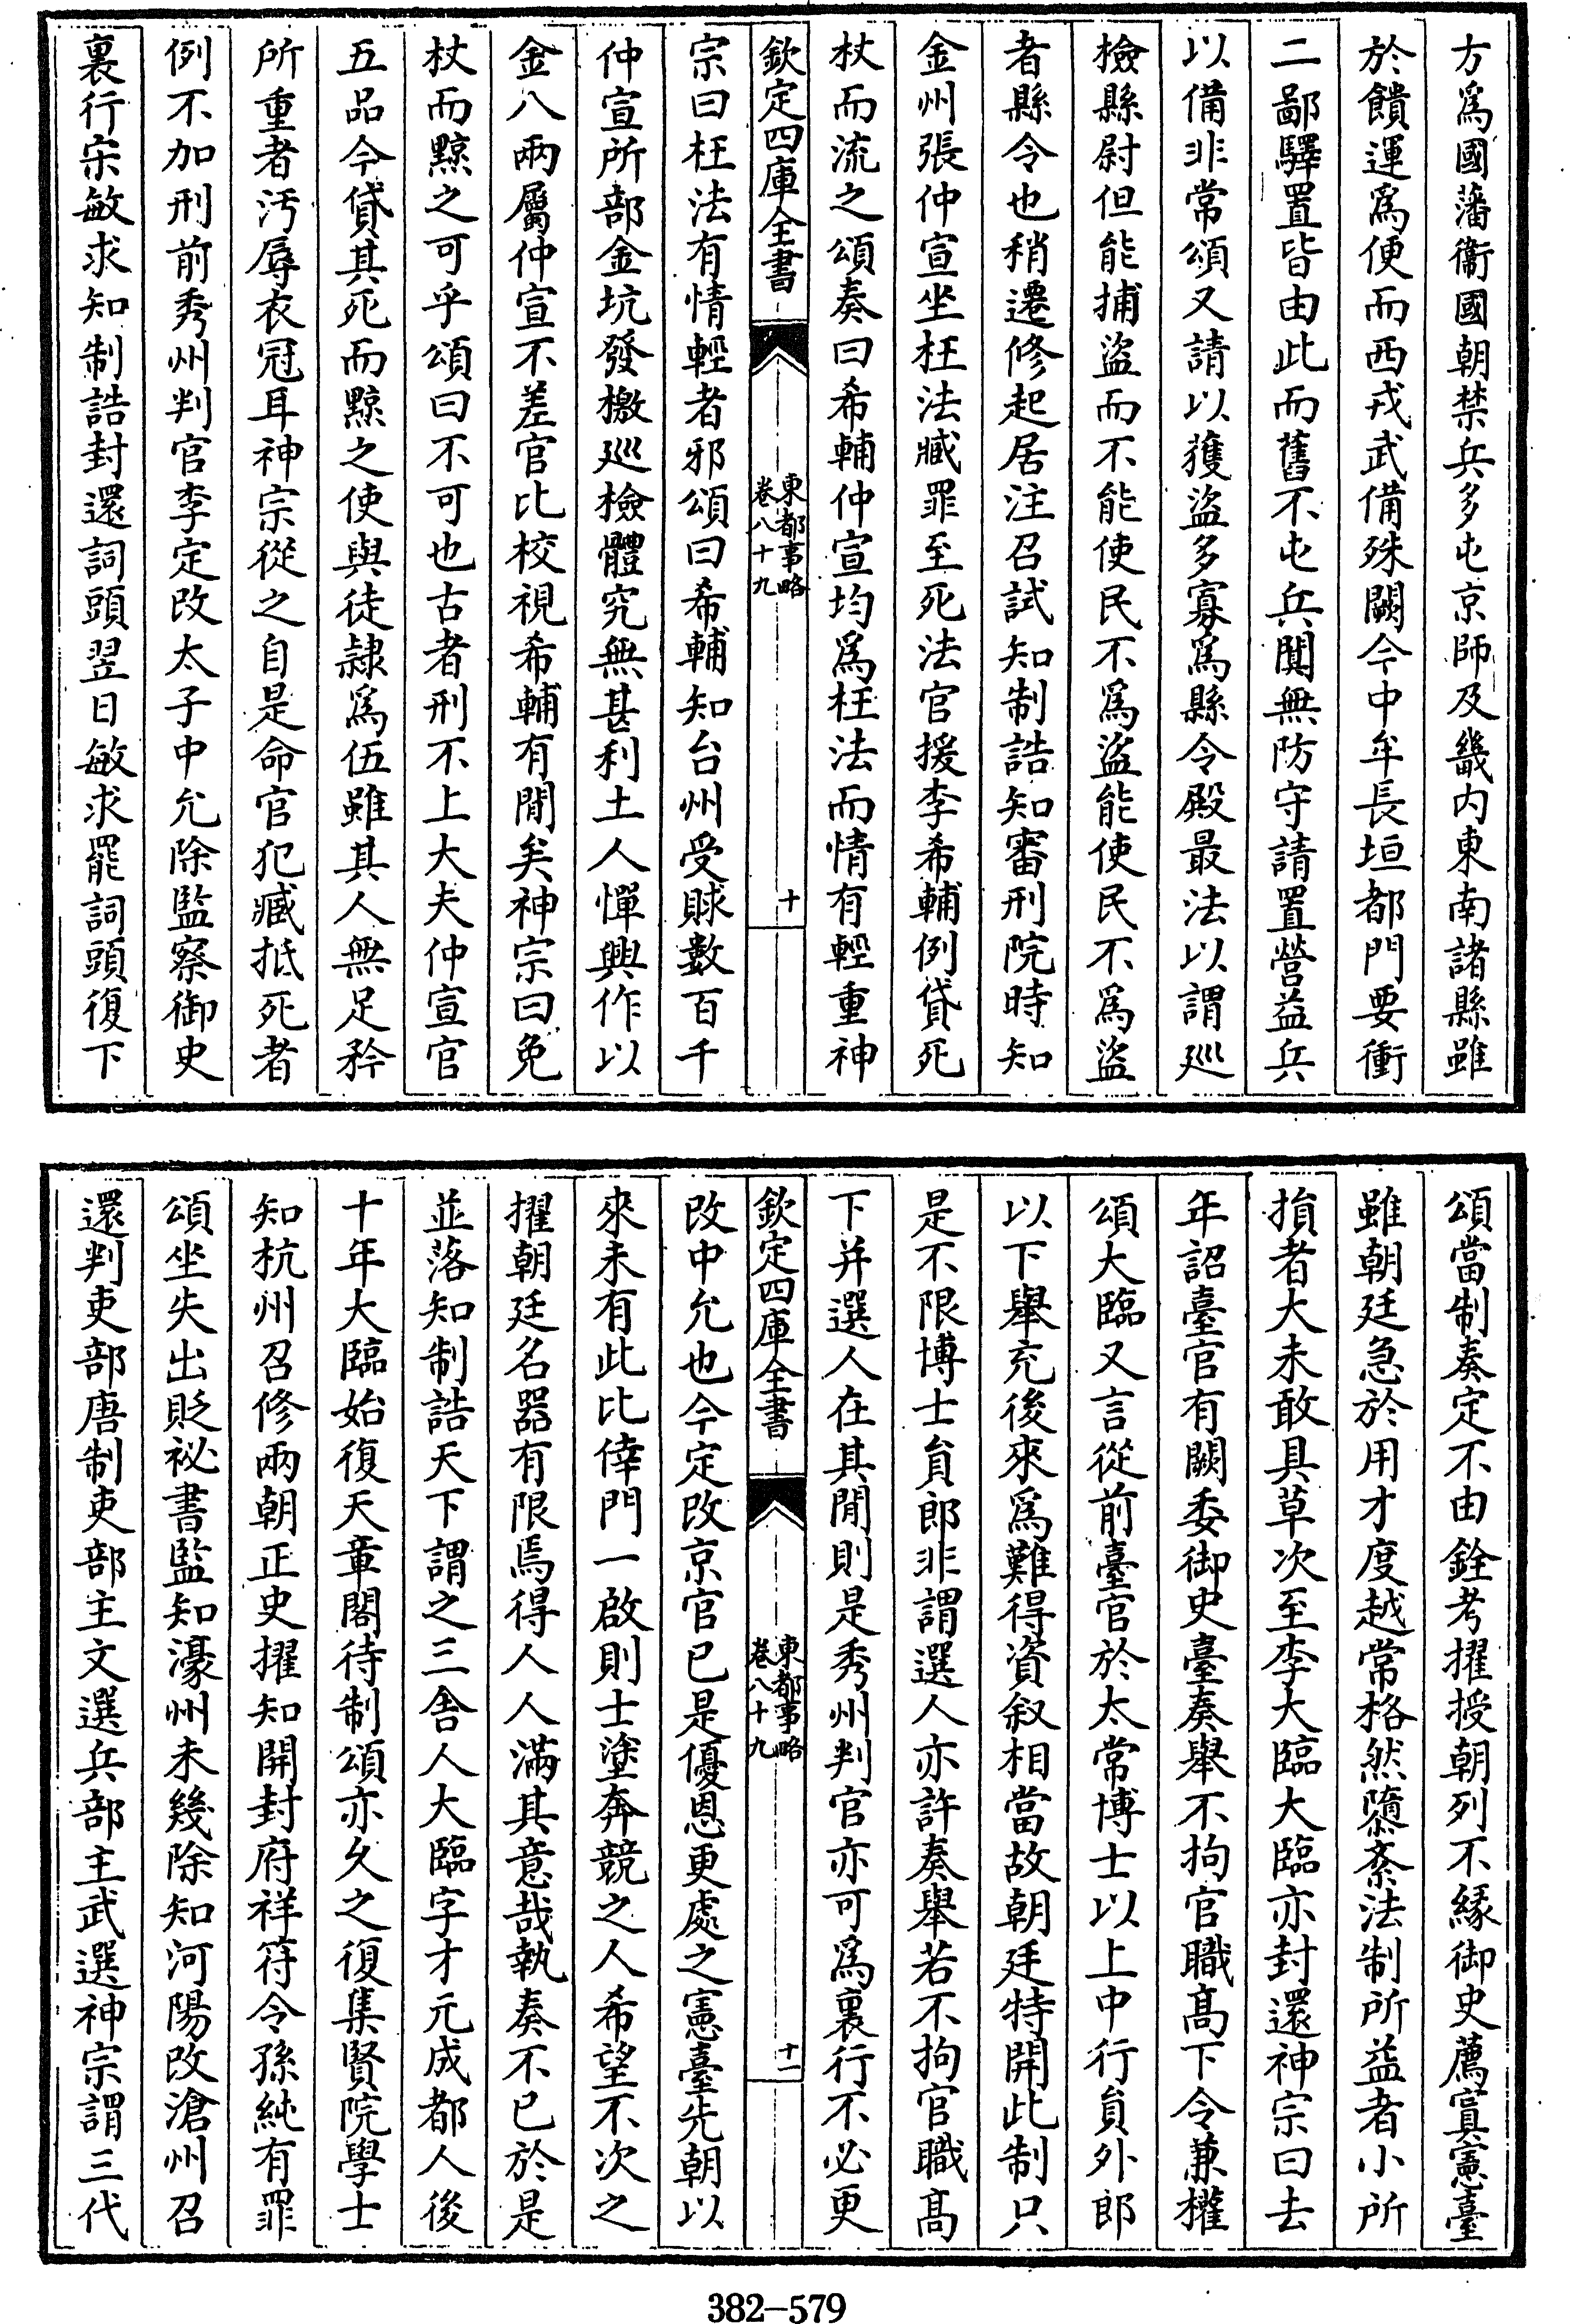 方爲國藩衞國朝禁兵多屯京師及畿内東南諸縣雖
於饋運爲便而西戎武備殊闕今中牟長垣都門要衝
二鄙驛置皆由此而舊不屯兵闃無防守請置營益兵
以備非常頌又請以獲盜多寡爲縣令殿最法以謂巡
檢縣尉但能捕盜而不能使民不爲盜能使民不爲盜
者縣令也稍遷修起居注召試知制誥知審刑院時知
金州張仲宣坐枉法贓罪至死法官援李希輔例貸死
杖而流之頌奏曰希輔仲宣均爲枉法而情有輕重神
欽定四庫全書
東都事略
卷八十九
十
宗曰枉法有情輕者邪頌曰希輔知台州受賕數百千
仲宣所部金坑發檄巡檢體究無甚利土人憚興作以
金八兩屬仲宣不差官比校視希輔有閒矣神宗曰免
杖而黥之可乎頌曰不可也古者刑不上大夫仲宣官
五品今貸其死而黥之使與徒隸爲伍雖其人無足矜
所重者汚辱衣冠耳神宗從之自是命官犯贓抵死者
例不加刑前秀州判官李定改太子中允除監察御史
裏行宋敏求知制誥封還詞頭翌日敏求罷詞頭復下
頌當制奏定不由銓考擢授朝列不緣御史薦寘憲臺
雖朝廷急於用才度越常格然隳紊法制所益者小所
損者大未敢具草次至李大臨大臨亦封還神宗曰去
年詔臺官有闕委御史臺奏舉不拘官職髙下令兼權
頌大臨又言從前臺官於太常博士以上中行員外郎
以下舉充後來爲難得資叙相當故朝廷特開此制只
是不限博士員郎非謂選人亦許奏舉若不拘官職髙
下并選人在其閒則是秀州判官亦可爲裏行不必更
欽定四庫全書
東都事略
卷八十九
十一
改中允也今定改京官已是優恩更處之憲臺先朝以
來未有此比倖門一啟則士塗奔競之人希望不次之
擢朝廷名器有限焉得人人滿其意哉執奏不已於是
並落知制誥天下謂之三舍人大臨字才元成都人後
十年大臨始復天章閣待制頌亦久之復集賢院學士
知杭州召修兩朝正史擢知開封府祥符令孫純有罪
頌坐失出貶祕書監知濠州未幾除知河陽改滄州召
還判吏部唐制吏部主文選兵部主武選神宗謂三代
382-579